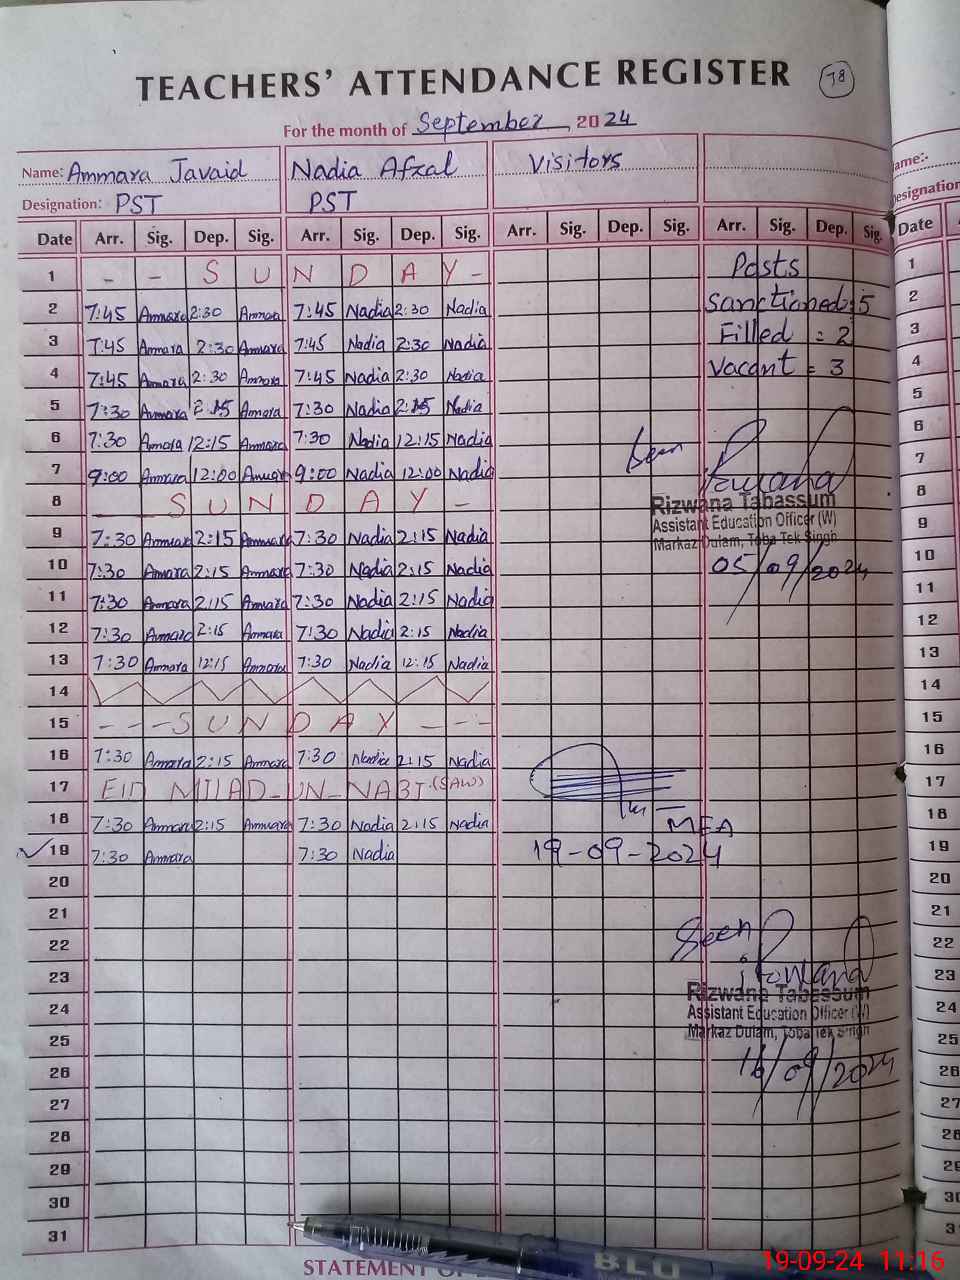 TEACHERS' ATTENDANCE REGISTER 78
For the month of September 2024
Name: Ammara Javaid Nadia Afzal Visitors
Designation: PST PST
Date Arr. Sig. Dep. Sig. Arr. Sig. Dep. Sig. Arr. Sig. Dep. Sig. Arr. Sig. Dep. Sig.
1 - - S U N D A Y - Posts
2 7:45 Ammara 2:30 Ammara 7:45 Nadia 2:30 Nadia Sanctioned: 5
3 7:45 Ammara 2:30 Ammara 7:45 Nadia 2:30 Nadia Filled = 2
4 7:45 Ammara 2:30 Ammara 7:45 Nadia 2:30 Nadia Vacant = 3
5 7:30 Ammara 2:15 Ammara 7:30 Nadia 2:15 Nadia
6 7:30 Ammara 12:15 Ammara 7:30 Nadia 12:15 Nadia
7 9:00 Ammara 12:00 Ammara 9:00 Nadia 12:00 Nadia Seen
8 S U N D A Y - Rizwana Tabassum
Assistant Education Officer (W)
9 7:30 Ammara 2:15 Ammara 7:30 Nadia 2:15 Nadia Markaz Dulam, Toba Tek Singh
10 7:30 Ammara 2:15 Ammara 7:30 Nadia 2:15 Nadia 05/09/2024
11 7:30 Ammara 2:15 Ammara 7:30 Nadia 2:15 Nadia
12 7:30 Ammara 2:15 Ammara 7:30 Nadia 2:15 Nadia
13 7:30 Ammara 12:15 Ammara 7:30 Nadia 12:15 Nadia
14
15 - - - S U N D A Y - - -
16 7:30 Ammara 2:15 Ammara 7:30 Nadia 2:15 Nadia
17 EID MILAD-UN-NABI (SAW)
18 7:30 Ammara 2:15 Ammara 7:30 Nadia 2:15 Nadia MEA
19 7:30 Ammara 7:30 Nadia 19-09-2024
20
21
22 Seen
23
24 Rizwana Tabassum
Assistant Education Officer (W)
25 Markaz Dulam, Toba Tek Singh
26 16/09/2024
27
28
29
30
31
STATEMENT OF
BLU
19-09-24 11:16
ame:-
Designation
Date
1
2
3
4
5
6
7
8
9
10
11
12
13
14
15
16
17
18
19
20
21
22
23
24
25
26
27
28
29
30